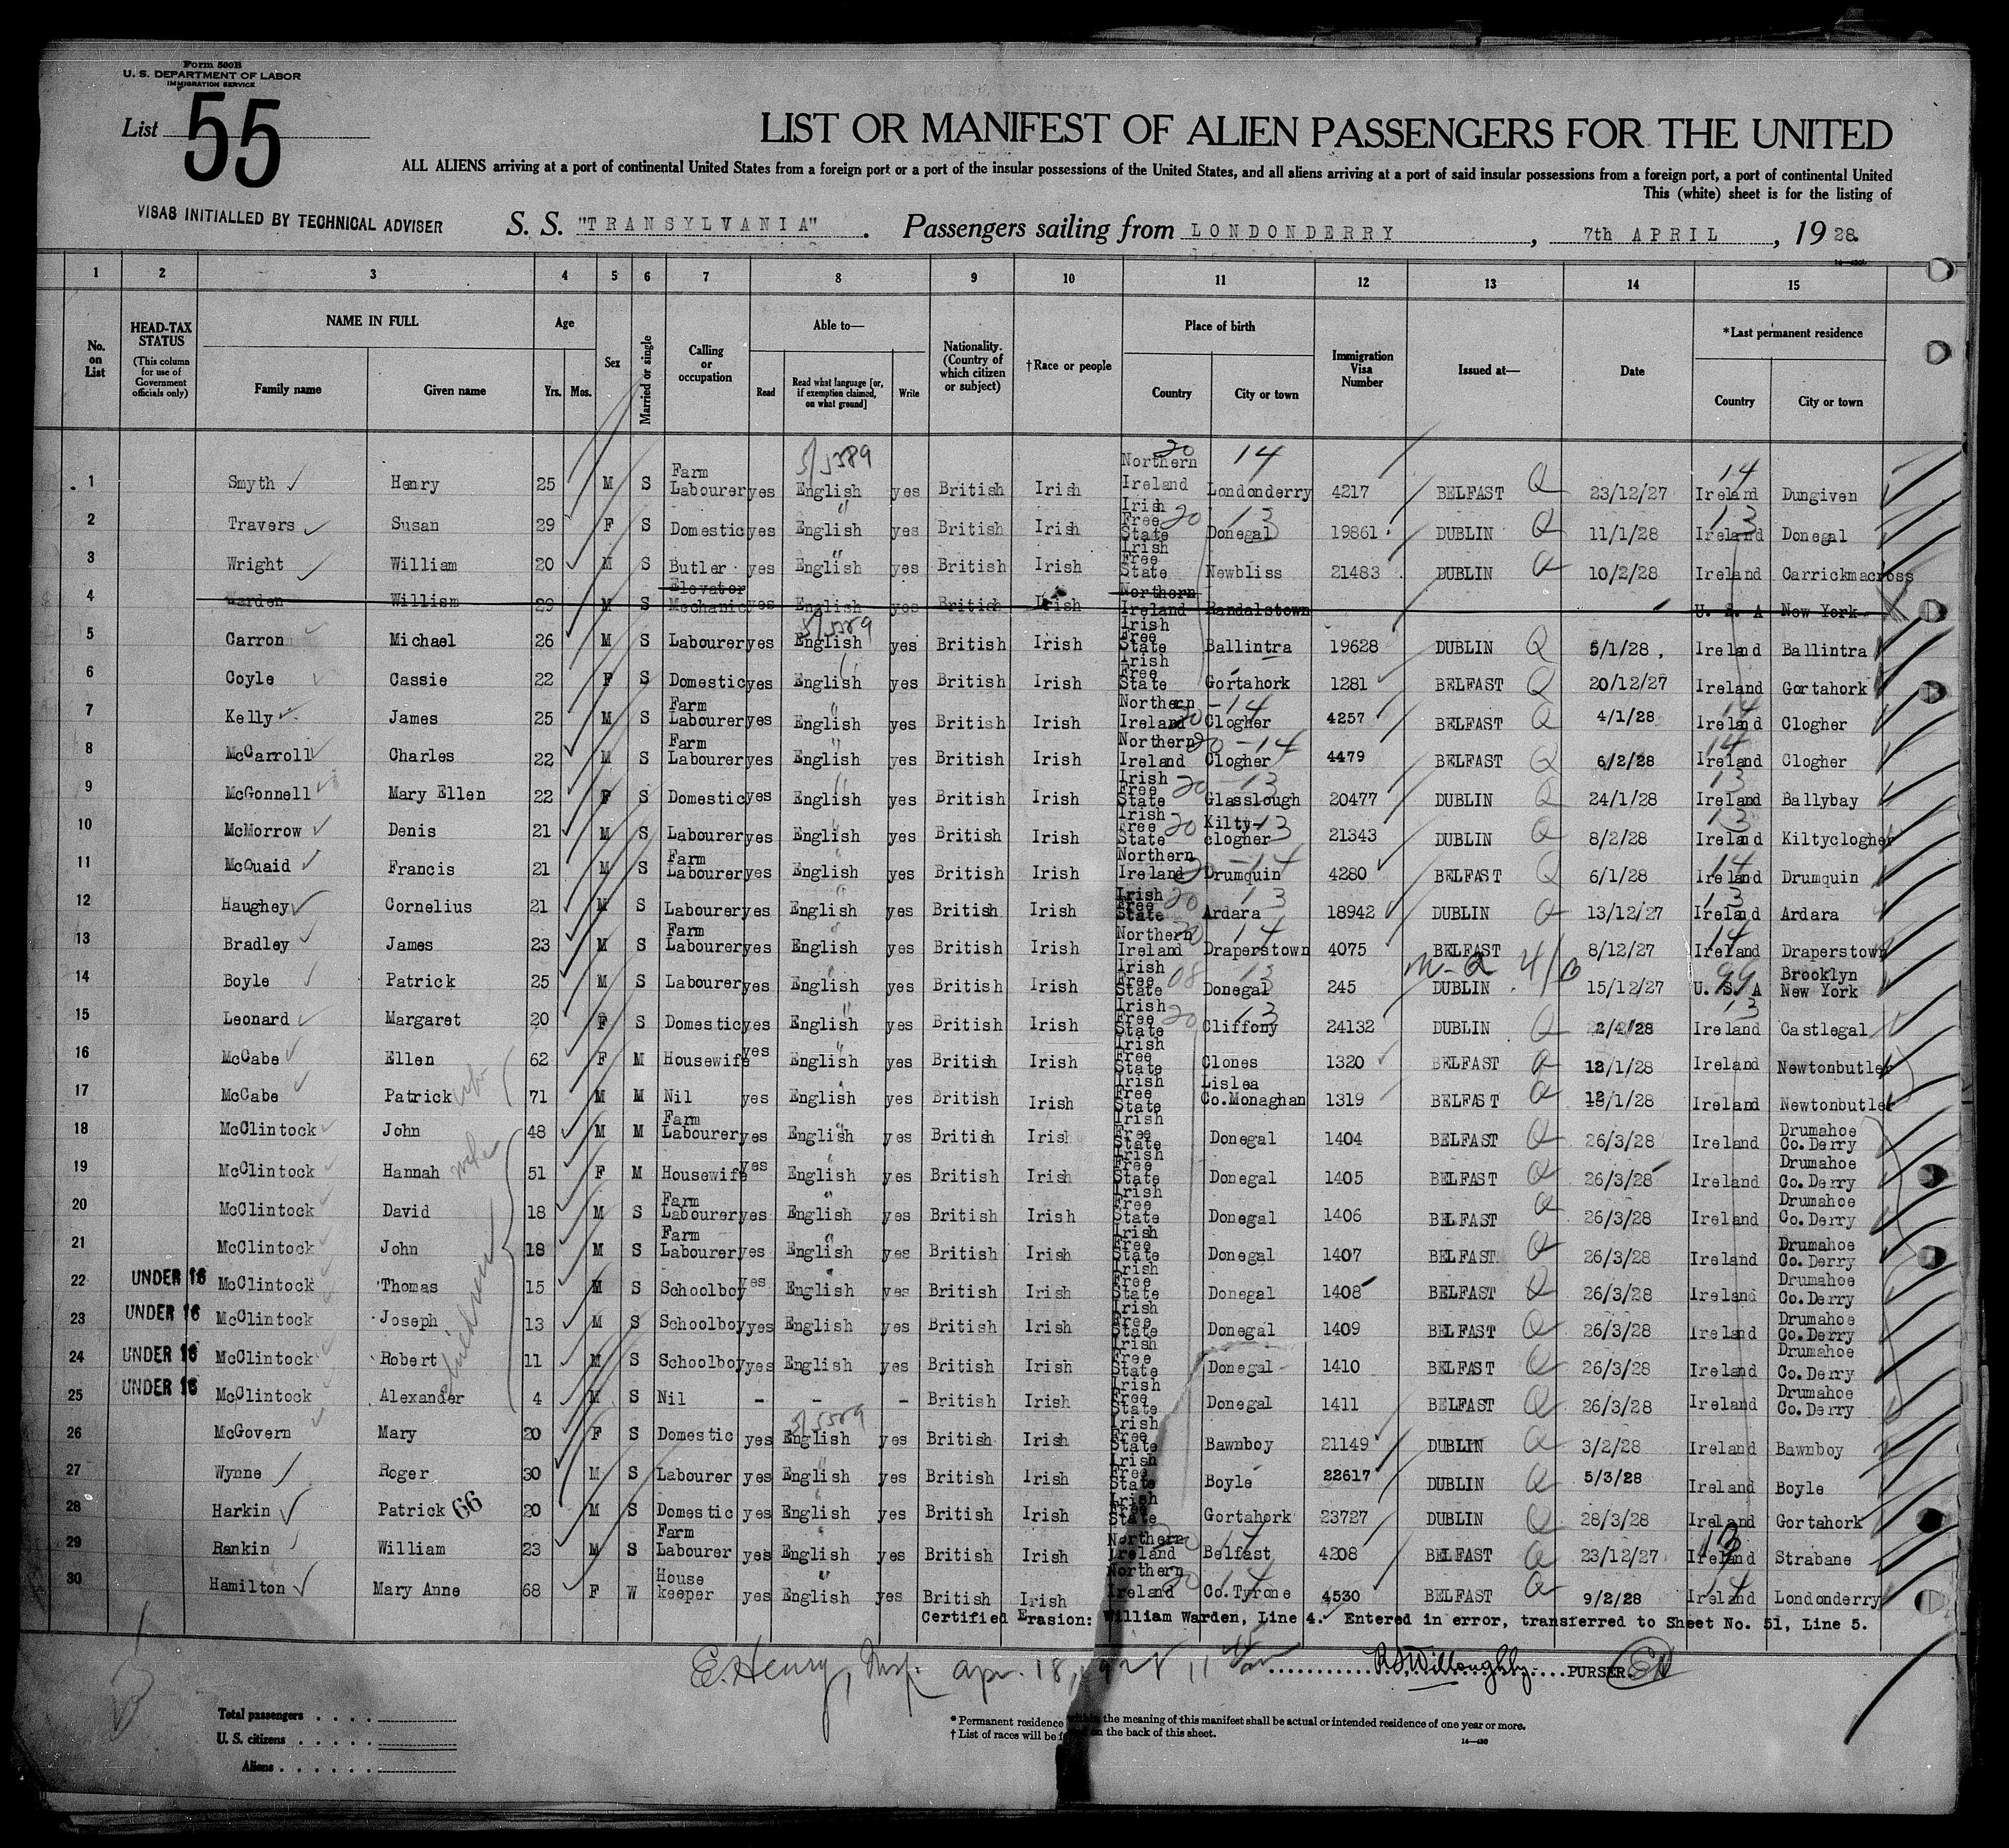 Form 500B
U. S. DEPARTMENT OF LABOR
IMMIGRATION SERVICE
List 55
LIST OR MANIFEST OF ALIEN PASSENGERS FOR THE UNITED
ALL ALIENS arriving at a port of continental United States from a foreign port or a port of the insular possessions of the United States, and all aliens arriving at a port of said insular possessions from a foreign port, a port of continental United
This (white) sheet is for the listing of
VISAS INITIALLED BY TECHNICAL ADVISER
S. S. "TRANSYLVANIA". Passengers sailing from LONDONDERRY, 7th APRIL, 1928.
1 2 3 4 5 6 7 8 9 10 11 12 13 14 15
No. on List
HEAD-TAX STATUS (This column for use of Government officials only)
NAME IN FULL Family name Given name
Age Yrs. Mos.
Sex
Married or single
Calling or occupation
Able to— Read Read what language [or, if exemption claimed, on what ground] Write
Nationality. (Country of which citizen or subject)
†Race or people
Place of birth Country City or town
Immigration Visa Number
Issued at—
Date
*Last permanent residence Country City or town
1 Smyth Henry 25 M S Farm Labourer yes English yes British Irish Northern Ireland Londonderry 4217 BELFAST Q 23/12/27 Ireland Dungiven
2 Travers Susan 29 F S Domestic yes English yes British Irish Irish Free State Donegal 19861 DUBLIN Q 11/1/28 Ireland Donegal
3 Wright William 20 M S Butler yes English yes British Irish Irish Free State Newbliss 21483 DUBLIN Q 10/2/28 Ireland Carrickmacross
4 Warden William 29 M S Elevator Mechanic yes English yes British Irish Northern Ireland Randalstown U. S. A New York
5 Carron Michael 26 M S Labourer yes English yes British Irish Irish Free State Ballintra 19628 DUBLIN Q 5/1/28 Ireland Ballintra
6 Coyle Cassie 22 F S Domestic yes English yes British Irish Irish Free State Gortahork 1281 BELFAST Q 20/12/27 Ireland Gortahork
7 Kelly James 25 M S Farm Labourer yes English yes British Irish Northern Ireland Clogher 4257 BELFAST Q 4/1/28 Ireland Clogher
8 McCarroll Charles 22 M S Farm Labourer yes English yes British Irish Northern Ireland Clogher 4479 BELFAST Q 6/2/28 Ireland Clogher
9 McGonnell Mary Ellen 22 F S Domestic yes English yes British Irish Irish Free State Glasslough 20477 DUBLIN Q 24/1/28 Ireland Ballybay
10 McMorrow Denis 21 M S Labourer yes English yes British Irish Irish Free State Kilty-clogher 21343 DUBLIN Q 8/2/28 Ireland Kiltyclogher
11 McQuaid Francis 21 M S Farm Labourer yes English yes British Irish Northern Ireland Drumquin 4280 BELFAST Q 6/1/28 Ireland Drumquin
12 Haughey Cornelius 21 M S Labourer yes English yes British Irish Irish Free State Ardara 18942 DUBLIN Q 13/12/27 Ireland Ardara
13 Bradley James 23 M S Farm Labourer yes English yes British Irish Northern Ireland Draperstown 4075 BELFAST 8/12/27 Ireland Draperstown
14 Boyle Patrick 25 M S Labourer yes English yes British Irish Irish Free State Donegal 245 DUBLIN 15/12/27 U. S. A Brooklyn New York
15 Leonard Margaret 20 F S Domestic yes English yes British Irish Irish Free State Cliffony 24132 DUBLIN Q 2/4/28 Ireland Castlegal
16 McCabe Ellen 62 F M Housewife yes English yes British Irish Irish Free State Clones 1320 BELFAST Q 12/1/28 Ireland Newtonbutler
17 McCabe Patrick 71 M M Nil yes English yes British Irish Irish Free State Lislea Co.Monaghan 1319 BELFAST Q 12/1/28 Ireland Newtonbutler
18 McClintock John 48 M M Farm Labourer yes English yes British Irish Irish Free State Donegal 1404 BELFAST Q 26/3/28 Ireland Drumahoe Co.Derry
19 McClintock Hannah 51 F M Housewife yes English yes British Irish Irish Free State Donegal 1405 BELFAST Q 26/3/28 Ireland Drumahoe Co.Derry
20 McClintock David 18 M S Farm Labourer yes English yes British Irish Irish Free State Donegal 1406 BELFAST Q 26/3/28 Ireland Drumahoe Co.Derry
21 McClintock John 18 M S Farm Labourer yes English yes British Irish Irish Free State Donegal 1407 BELFAST Q 26/3/28 Ireland Drumahoe Co.Derry
22 UNDER 16 McClintock Thomas 15 M S Schoolboy yes English yes British Irish Irish Free State Donegal 1408 BELFAST Q 26/3/28 Ireland Drumahoe Co.Derry
23 UNDER 16 McClintock Joseph 13 M S Schoolboy yes English yes British Irish Irish Free State Donegal 1409 BELFAST Q 26/3/28 Ireland Drumahoe Co.Derry
24 UNDER 16 McClintock Robert 11 M S Schoolboy yes English yes British Irish Irish Free State Donegal 1410 BELFAST Q 26/3/28 Ireland Drumahoe Co.Derry
25 UNDER 16 McClintock Alexander 4 M S Nil - - - British Irish Irish Free State Donegal 1411 BELFAST Q 26/3/28 Ireland Drumahoe Co.Derry
26 McGovern Mary 20 F S Domestic yes English yes British Irish Irish Free State Bawnboy 21149 DUBLIN Q 3/2/28 Ireland Bawnboy
27 Wynne Roger 30 M S Labourer yes English yes British Irish Irish Free State Boyle 22617 DUBLIN Q 5/3/28 Ireland Boyle
28 Harkin Patrick 66 20 M S Domestic yes English yes British Irish Irish Free State Gortahork 23727 DUBLIN Q 28/3/28 Ireland Gortahork
29 Rankin William 23 M S Farm Labourer yes English yes British Irish Northern Ireland Belfast 4208 BELFAST Q 23/12/27 Ireland Strabane
30 Hamilton Mary Anne 68 F W House keeper yes English yes British Irish Northern Ireland Co.Tyrone 4530 BELFAST Q 9/2/28 Ireland Londonderry
Certified Erasion: William Warden, Line 4. Entered in error, transferred to Sheet No. 51, Line 5.
E. Henry, Insp. Apr. 18, 1928 RSWilloughby PURSER.
Total passengers
U. S. citizens
Aliens
* Permanent residence within the meaning of this manifest shall be actual or intended residence of one year or more.
† List of races will be found on the back of this sheet.
14—430